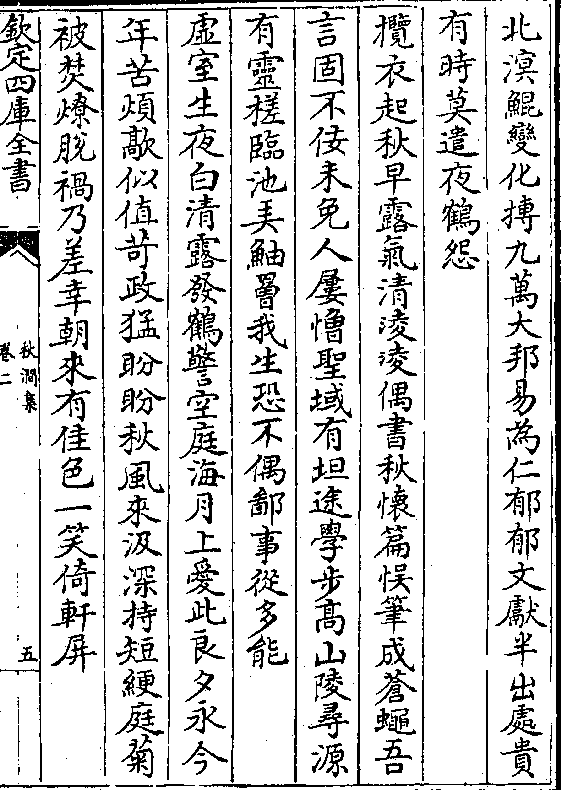 北溟鯤變化摶九萬大邦易為仁郁郁文獻半出處貴
有時莫遣夜鶴怨
攬衣起秋早露氣清淩淩偶書秋懷篇悮筆成蒼蠅吾
言固不佞未免人屢憎聖域有坦途學步髙山陵尋源
有靈槎臨池羙鮋鼉我生恐不偶鄙事從多能
虛室生夜白清露發鶴警空庭海月上愛此良夕永今
年苦煩歊似值苛政猛盼盼秋風來汲深持短綆庭菊
被焚燎脫禍乃差幸朝來有佳色一笑倚軒屏
欽定四庫全書
秋澗集
卷二
五